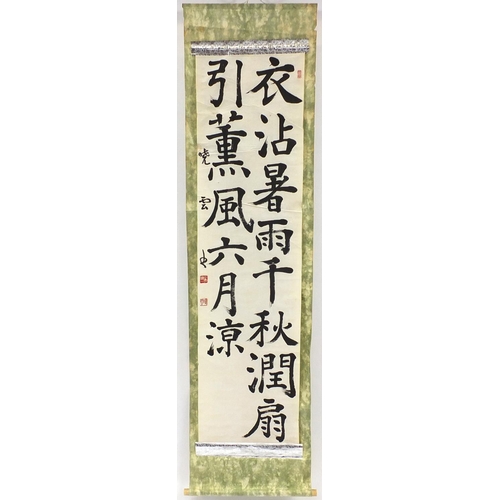 衣沾暑雨千秋潤扇
引薫風六月涼
曉雲